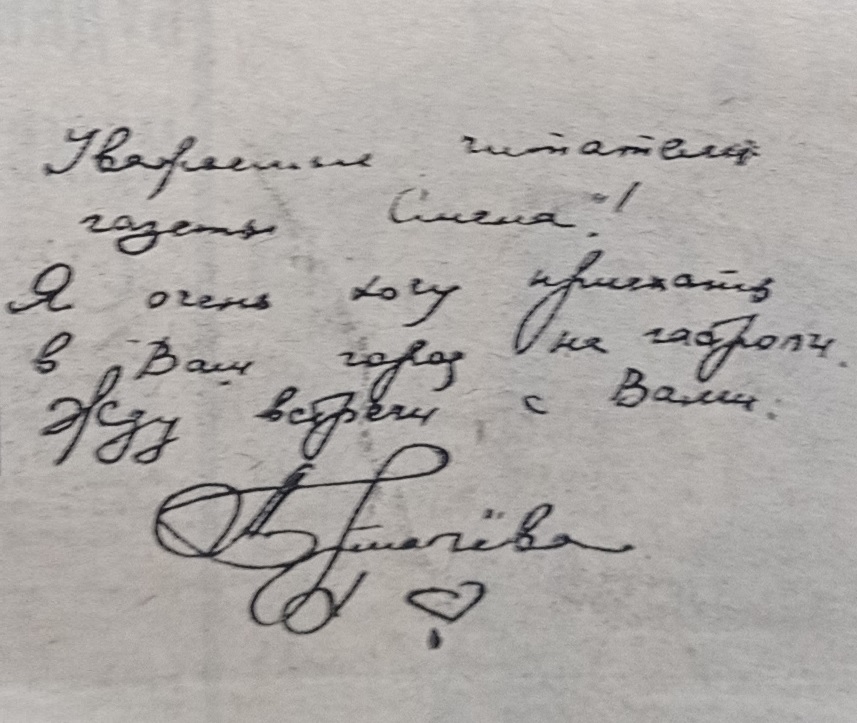 Уважаемые читатели
газеты Смена"!
Я очень хочу приехать
в Ваш город на гастроли.
Жду встречи с Вами.